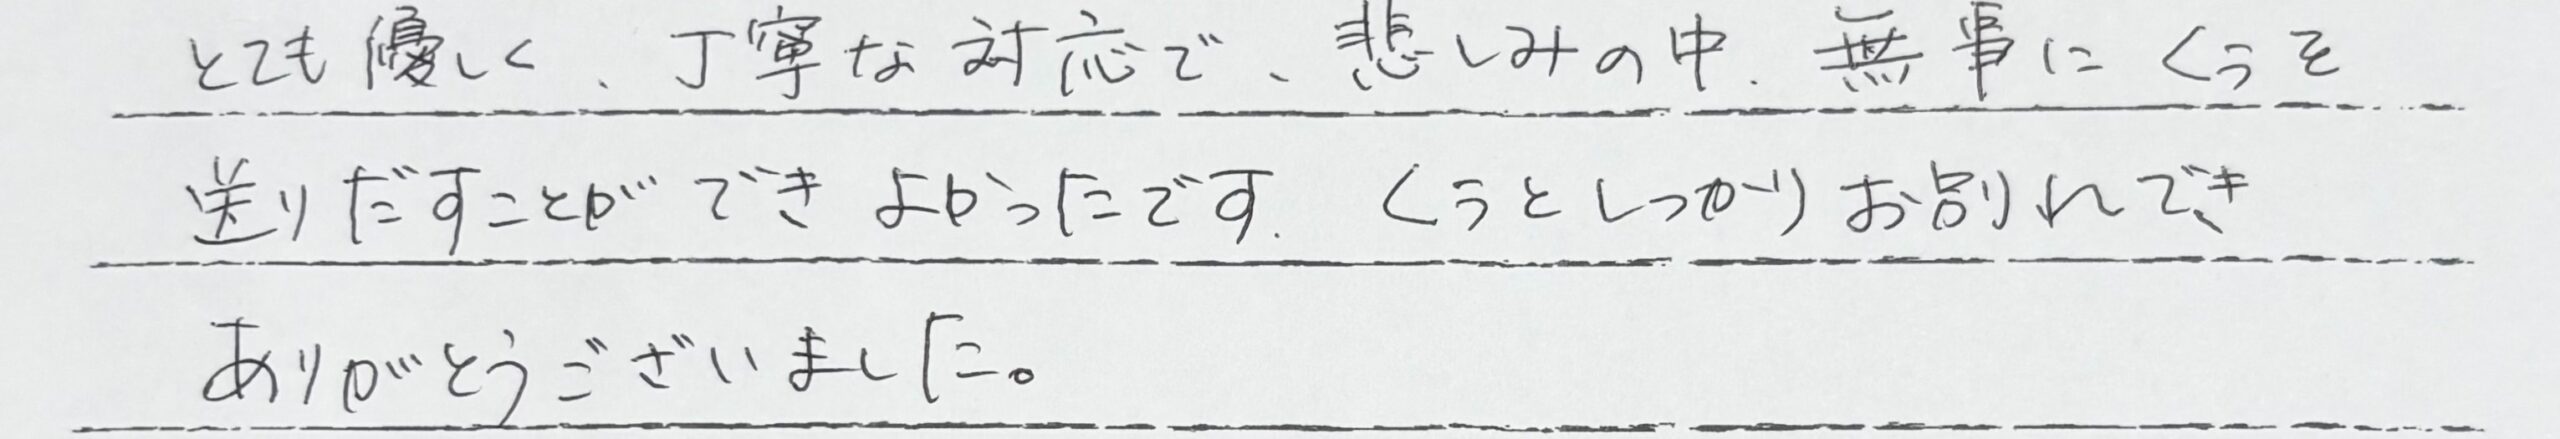 とても優しく、丁寧な対応で、悲しみの中、無事にくうを
送りだすことができよかったです。くうとしっかりお別れでき
ありがとうございました。